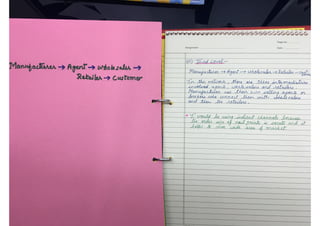 Manufacturer → Agent → Wholesaler →
Retailer → Customer
Page No.
Date
Assignment
Third Level -
Manufacturer → Agent → Wholesaler → Retailer →
In this network, there are three intermediaries
involved agent, wholesalers and retailers.
Manufacturers use their own selling agents or
brokers who connect them with wholesalers
and then the retailers.
* I would be using indirect channels because
the order size of cool points is small and it
helps to cover wide area of market